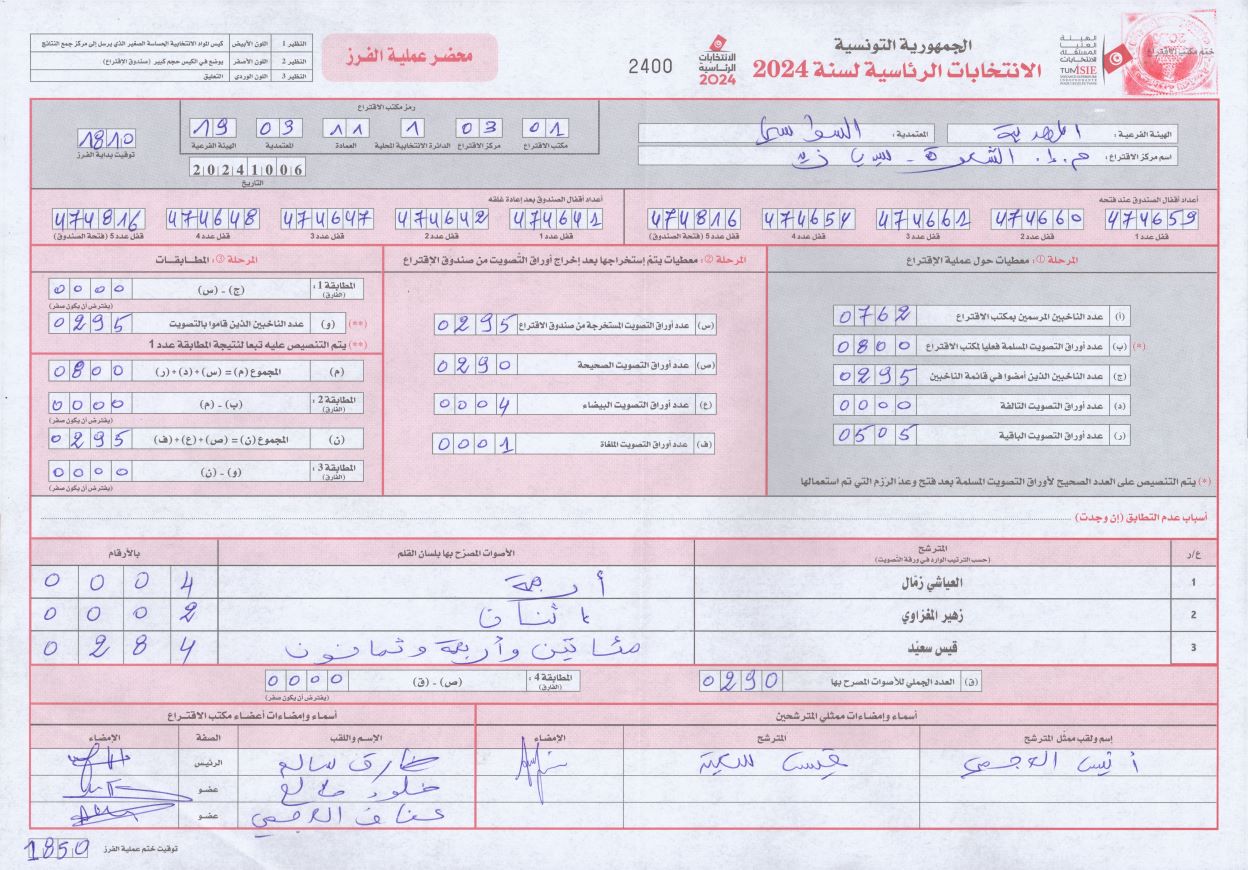 الجمهورية التونسية
الانتخابات الرئاسية لسنة 2024
الهيئة العليا المستقلة للانتخابات
TUNISIE
ختم مكتب الاقتراع
الانتخابات الرئاسية 2024
2400
محضر عملية الفرز
النظير 1 اللون الأبيض كيس المواد الانتخابية الحساسة الصغير الذي يرسل إلى مركز جمع النتائج
النظير 2 اللون الأصفر يوضع في الكيس حجم كبير (صندوق الإقتراع)
النظير 3 اللون الوردي التعليق
الهيئة الفرعية : المهدية المعتمدية : السواسي
اسم مركز الاقتراع : م.إ. الشعرة -
رمز مكتب الاقتراع
01 03 1 11 03 19
مكتب الاقتراع مركز الإقتراع الدائرة الانتخابية المحلية العمادة المعتمدية الهيئة الفرعية
20241006
التاريخ
1810
توقيت بداية الفرز
أعداد أقفال الصندوق عند فتحه
474659 474660 474661 474654 474816
قفل عدد 1 قفل عدد 2 قفل عدد 3 قفل عدد 4 قفل عدد 5 (فتحة الصندوق)
أعداد أقفال الصندوق بعد إعادة غلقه
474641 474642 474647 474648 474816
قفل عدد 1 قفل عدد 2 قفل عدد 3 قفل عدد 4 قفل عدد 5 (فتحة الصندوق)
المرحلة ①: معطيات حول عملية الإقتراع
(أ) عدد الناخبين المرسمين بمكتب الاقتراع 0762
(*) (ب) عدد أوراق التصويت المسلمة فعليا لمكتب الاقتراع 0800
(ج) عدد الناخبين الذين أمضوا في قائمة الناخبين 0295
(د) عدد أوراق التصويت التالفة 0000
(ر) عدد أوراق التصويت الباقية 0505
(*) يتم التنصيص على العدد الصحيح لأوراق التصويت المسلمة بعد فتح وعدّ الرّزم التي تم استعمالها
المرحلة ②: معطيات يتمّ إستخراجها بعد إخراج أوراق التّصويت من صندوق الإقتراع
(س) عدد أوراق التصويت المستخرجة من صندوق الاقتراع 0295
(ص) عدد أوراق التصويت الصحيحة 0290
(ع) عدد أوراق التصويت البيضاء 0004
(ف) عدد أوراق التصويت الملغاة 0001
المرحلة ③: المطابقات
المطابقة 1: (الفارق) (ج) - (س) 0000
(يفترض أن يكون صفر)
(**) (و) عدد الناخبين الذين قاموا بالتصويت 0295
(**) يتم التنصيص عليه تبعا لنتيجة المطابقة عدد 1
(م) المجموع (م) = (س)+(د)+(ر) 0800
المطابقة 2: (الفارق) (ب) - (م) 0000
(يفترض أن يكون صفر)
(ن) المجموع (ن) = (ص)+(ع)+(ف) 0295
المطابقة 3: (الفارق) (و) - (ن) 0000
(يفترض أن يكون صفر)
أسباب عدم التطابق (إن وجدت)
ع/ر المترشح (حسب الترتيب الوارد في ورقة التصويت) الأصوات المصرّح بها بلسان القلم بالأرقام
1 العياشي زمّال أربعة 0004
2 زهير المغزاوي اثنان 0002
3 قيس سعيّد مئاتين وأربعة وثمانون 0284
(ق) العدد الجملي للأصوات المصرح بها 0290 المطابقة 4: (الفارق) (ص) - (ق) 0000
(يفترض أن يكون صفر)
أسماء وإمضاءات ممثلي المترشحين
إسم ولقب ممثل المترشح المترشح الإمضاء
أنيس العجمي قيس سعيد
أسماء وإمضاءات أعضاء مكتب الاقتراع
الإسم واللقب الصفة الإمضاء
طارق سالم الرئيس
خلود عضو
عفاف العجمي عضو
توقيت ختم عملية الفرز 1850